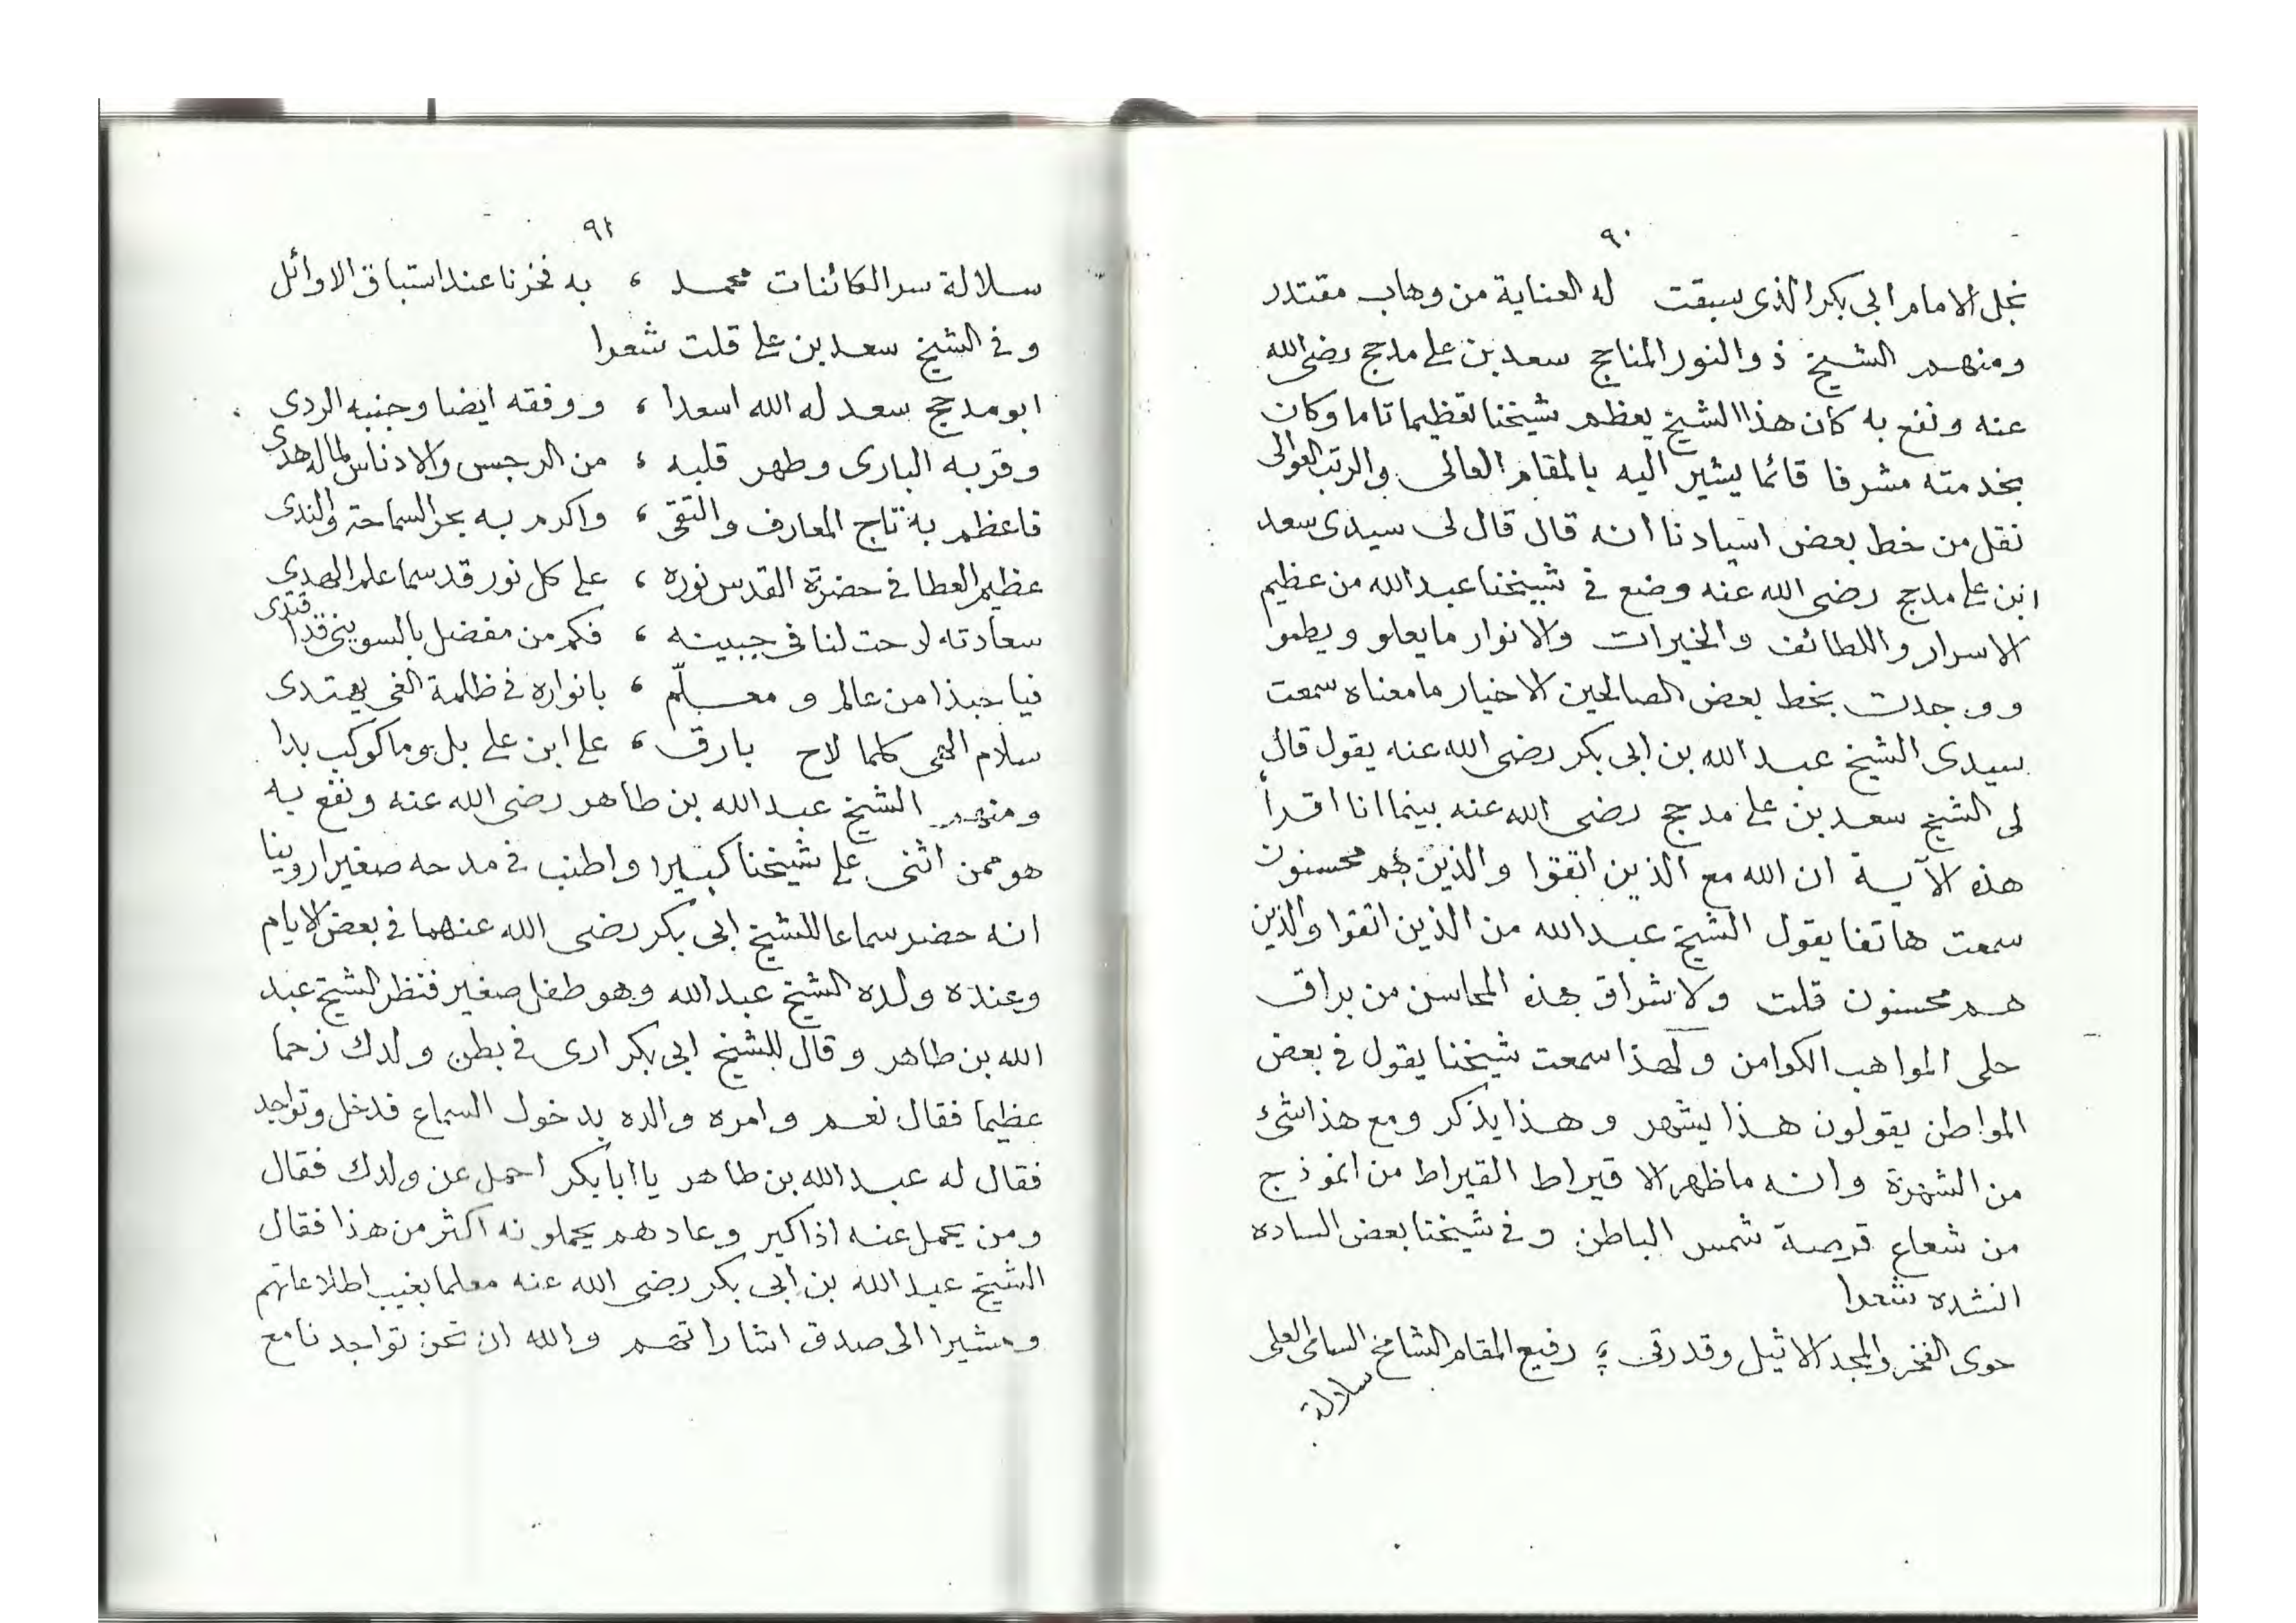 ٩٠
نجل الامام ابى بكر الذى سبقت له العناية من وهاب مقتدر
ومنهم الشيخ ذو النور المناجج سعد بن على مدحج رضى الله
عنه ونفع به كان هذا الشيخ يعظم شيخنا تعظيما تاما وكان
بخدمته مشرفا قائما يشير اليه بالمقام العالى والرتب العوالى
نقل من خط بعض اسيادنا انه قال قال لى سيدى سعد
ابن على مدحج رضى الله عنه وضع فى شيخنا عبد الله من عظيم
الاسرار واللطائف والخيرات والانوار ما يعلو ويطموا
ووجدت بخط بعض الصالحين الاخيار ما معناه سمعت
سيدى الشيخ عبد الله بن ابى بكر رضى الله عنه يقول قال
لى الشيخ سعد بن على مدحج رضى الله عنه بينما انا اقرأ
هذه الآية ان الله مع الذين اتقوا والذين هم محسنون
سمعت هاتفا يقول الشيخ عبد الله من الذين اتقوا والذين
هم محسنون قلت ولاشراق هذه المحاسن من براق
حلى المواهب الكوامن ولهذا سمعت شيخنا يقول فى بعض
المواطن يقولون هذا يشهر وهذا يذكر ومع هذا شئ
من الشهرة وانه ما ظهر الا قيراط القيراط من انموذج
من شعاع قرصة شمس الباطن وفى شيخنا بعض الساده
انشده شعرا
حوى الفخر والمجد الاثيل وقد رقى ؛ رفيع المقام الشامخ السامى العلى
سلالة
٩١
سلالة سر الكائنات محمد ، به فخرنا عند استباق الاوائل
وفى الشيخ سعد بن على قلت شعرا
ابو مدحج سعد له الله اسعدا ، ووفقه ايضا وجنبه الردى
وقربه البارى وطهر قلبه ، من الرجس والادناس لما له هدى
فاعظم به تاج المعارف والتقى ، واكرم به بحر السماحة والندى
عظيم العطا فى حضرة القدس نوره ، على كل نور قد سما علم الهدى
سعادته لاحت لنا فى جبينه ، فكم من مفضل بالسوينى قد اقتدى
فيا حبذا من عالم ومعلّم ، بانواره فى ظلمة الغى يهتدى
سلام الهى كلما لاح بارق ، على ابن على بل وما كوكب بدا
ومنهم الشيخ عبد الله بن طاهر رضى الله عنه ونفع به
هو ممن اثنى على شيخنا كبيرا واطنب فى مدحه صغيرا روينا
انه حضر سماعا للشيخ ابى بكر رضى الله عنهما فى بعض الايام
وعنده ولده الشيخ عبد الله وهو طفل صغير فنظر الشيخ عبد
الله بن طاهر وقال للشيخ ابى بكر ارى فى بطن ولدك زحما
عظيما فقال نعم وامره والده بدخول السماع فدخل وتواجد
فقال له عبد الله بن طاهر يا ابا بكر احمل عن ولدك فقال
ومن يحمل عنه اذا كبر وعادهم يحملونه اكثر من هذا فقال
الشيخ عبد الله بن ابى بكر رضى الله عنه معلما بغيب اطلاعاتهم
ومشيرا الى صدق اشاراتهم والله ان نحن تواجدنا مع